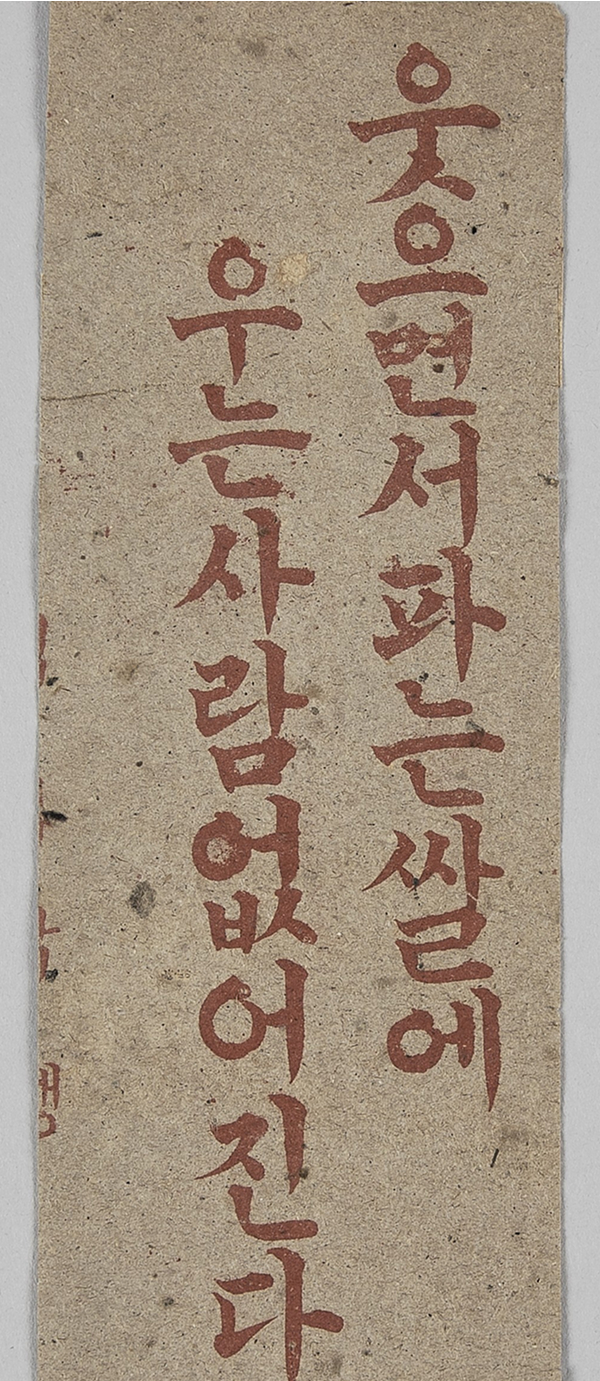 웃으면서파는쌀에
우는사람없어진다